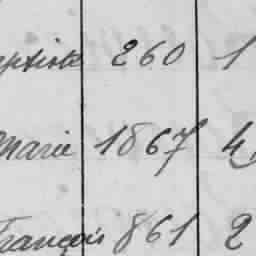 aptiste 260 1
Marie 1867 4
François 861 2